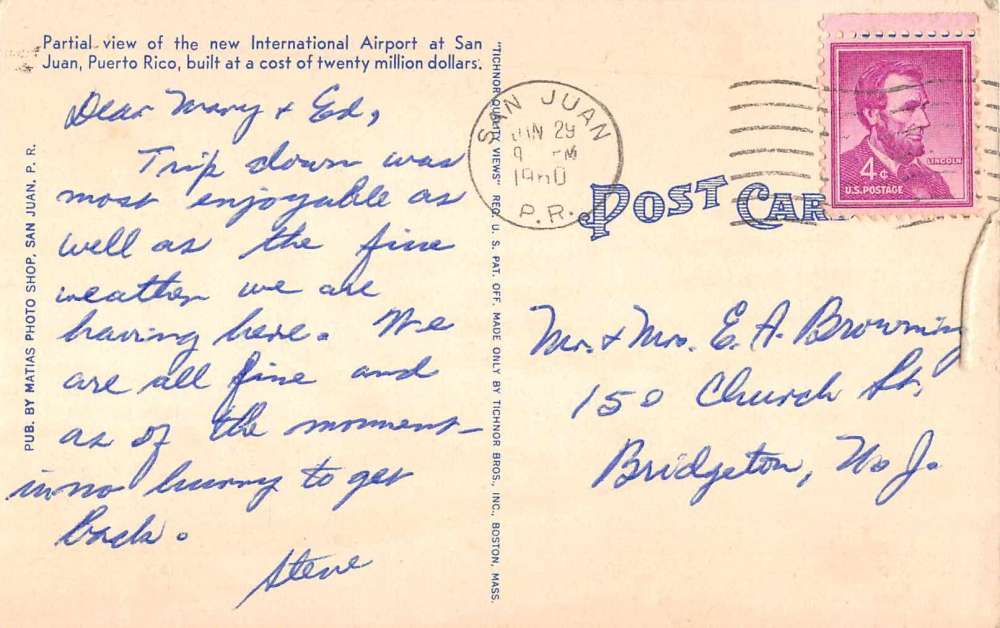 Partial view of the new International Airport at San
Juan, Puerto Rico, built at a cost of twenty million dollars.
Dear Mary & Ed,
Trip down was
most enjoyable as
well as the fine
weather we are
having here. We
are all fine and
as of the moment
in no hurry to get
back.
Steve
PUB. BY MATIAS PHOTO SHOP, SAN JUAN, P. R.
"TICHNOR QUALITY VIEWS" REG. U. S. PAT. OFF. MADE ONLY BY TICHNOR BROS., INC., BOSTON, MASS.
SAN JUAN
29
1960
P.R.
POST CAR
4¢
LINCOLN
U.S. POSTAGE
Mr. & Mrs. E. A. Browning
150 Church St.
Bridgeton, N. J.